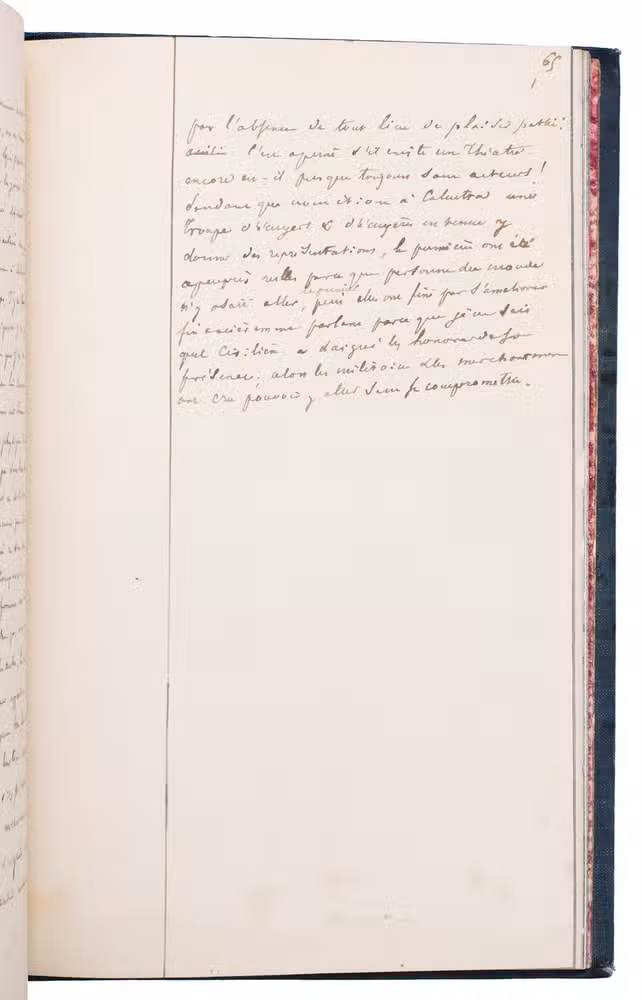 65
par l'absence de tout lieu de plaisir public.
C'est à peine s'il existe un Théatre
encore est-il presque toujours sans acteurs!
Pendant que nous étions à Calcutta une
Troupe d'écuyers & d'écuyères est venue y
donner des représentations, les premières ont été
à peu près nulles parce que personne du monde
n'y osait aller, ensuite elles ont fini par s'améliorer
financièrement parlant parce que je ne sais
quel Civilien a daigné les honorer de sa
présence; alors les militaires & les marchands
ont cru pouvoir y aller sans se compromettre.